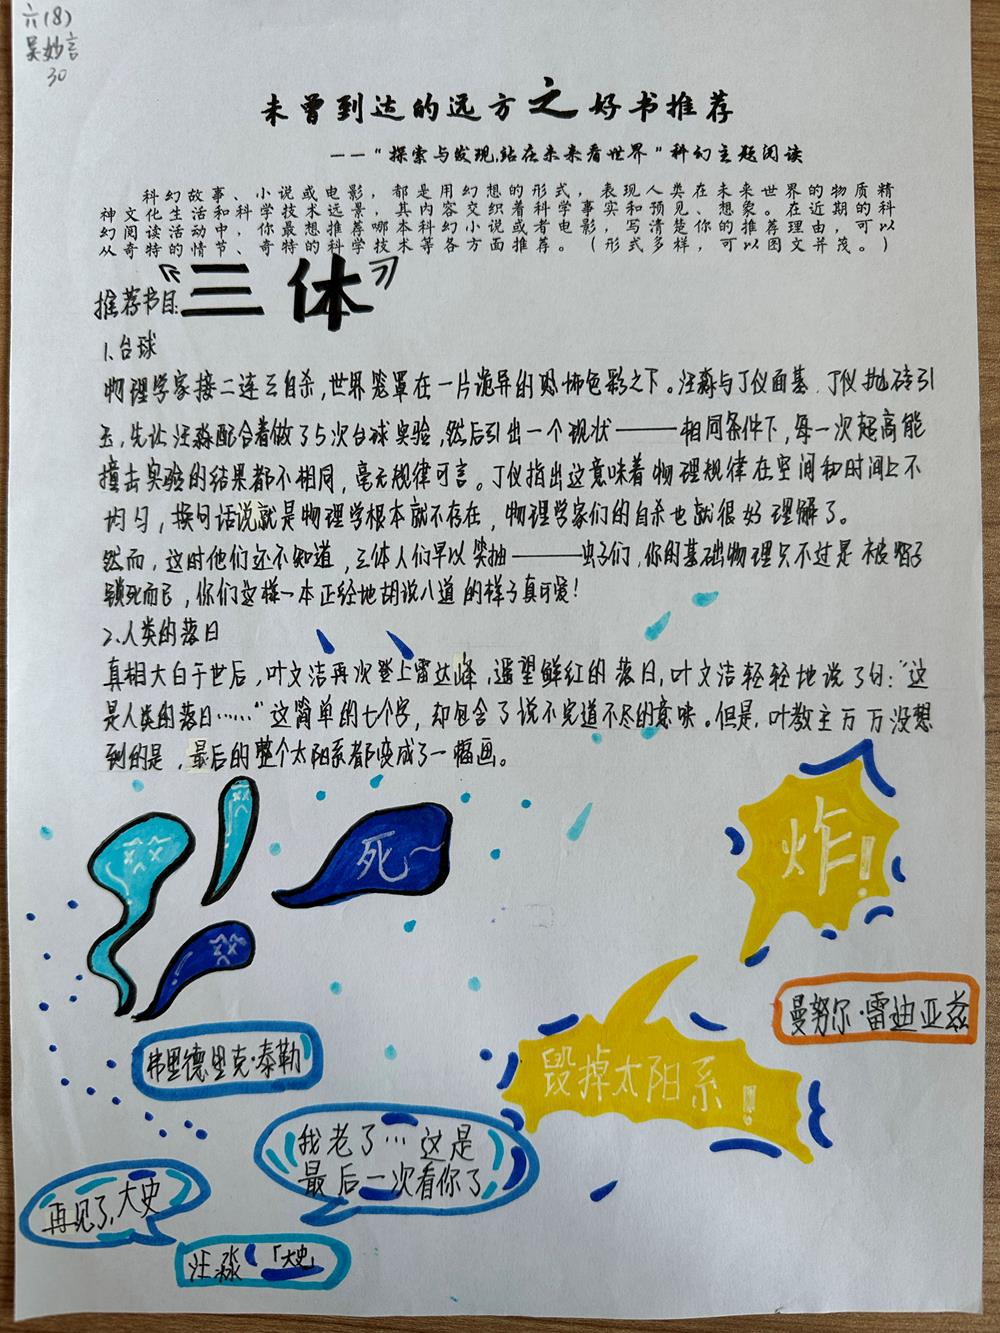 六(8)
吴妙言
30
未曾到达的远方之好书推荐
——“探索与发现,站在未来看世界”科幻主题阅读
科幻故事、小说或电影，都是用幻想的形式，表现人类在未来世界的物质精
神文化生活和科学技术远景，其内容交织着科学事实和预见、想象。在近期的科
幻阅读活动中，你最想推荐哪本科幻小说或者电影，写清楚你的推荐理由，可以
从奇特的情节、奇特的科学技术等各方面推荐。（形式多样，可以图文并茂。）
推荐书目:《三体》
1.台球
物理学家接二连三自杀,世界笼罩在一片诡异的恐怖色彩之下。汪淼与丁仪面基,丁仪抛砖引
玉,先让汪淼配合着做了5次台球实验,然后引出一个现状——相同条件下,每一次超高能
撞击实验的结果都不相同,毫无规律可言。丁仪指出这意味着物理规律在空间和时间上不
均匀,换句话说就是物理学根本就不存在,物理学家们的自杀也就很好理解了。
然而,这时他们还不知道,三体人们早以笑抽——虫子们,你的基础物理只不过是被智子
锁死而已,你们这样一本正经地胡说八道的样子真可爱!
2.人类的落日
真相大白于世后,叶文洁再次登上雷达峰,遥望鲜红的落日,叶文洁轻轻地说了句:“这
是人类的落日……”这简单的七个字,却包含了说不完道不尽的意味。但是,叶教主万万没想
到的是,最后的整个太阳系都变成了一幅画。
死~
炸!
曼努尔·雷迪亚兹
毁掉太阳系!
弗里德里克·泰勒
我老了…这是
最后一次看你了
再见了,大史
汪淼「大史」